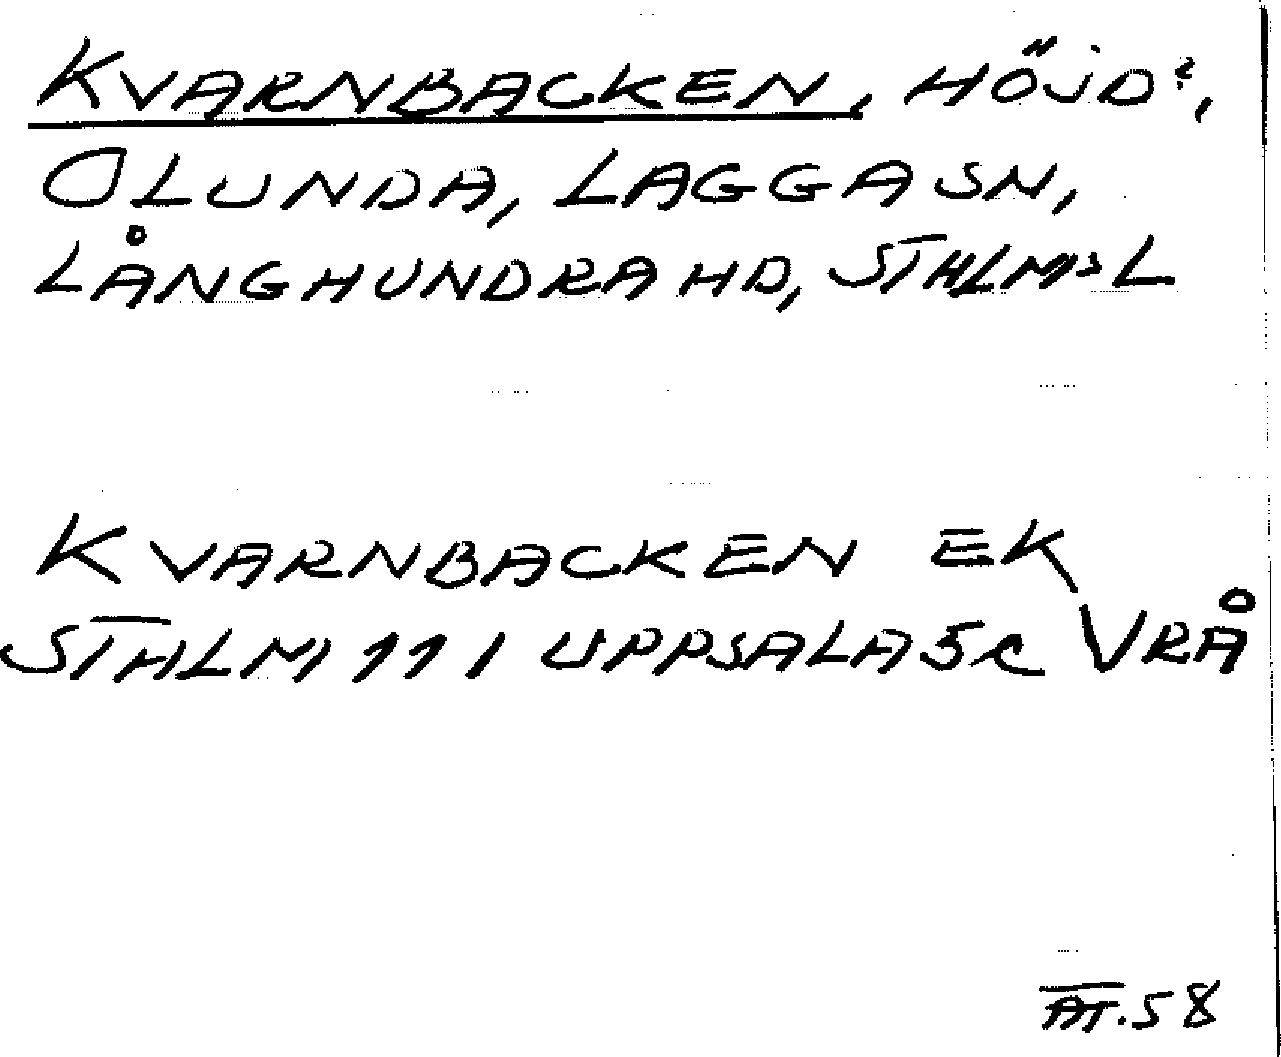 KVARNBACKEN, HÖJD?,
OLUNDA, LAGGA SN,
LÅNGHUNDRA HD, STHLMS L
KVARNBACKEN EK
STHLM 111 UPPSALA 5c VRÅ
AT. 58